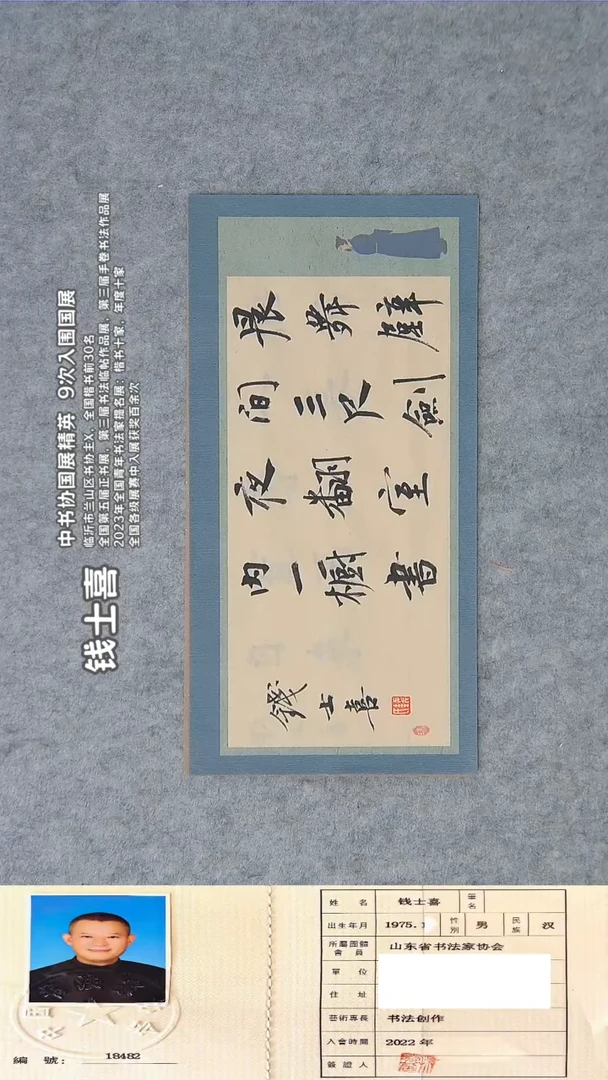 钱士喜
中书协国展精英 9次入围国展
临沂市兰山区书协主X、全国楷书前30名
全国第五届正书展、第三届书法临帖作品展、第三届手卷书法作品展
2023年全国青年书法家提名展：楷书十家，年度十家
全国各级展赛中入展获奖百余次
晨舞壁
间三尺劍
夜翻室
内一橱書
錢士喜
編 號： 18482
姓 名 钱士喜 筆名
出生年月 1975. 性别 男 民族 汉
所屬團體會員 山东省书法家协会
單 位
住 址
藝術專長 书法创作
入會時間 2022 年
簽證人